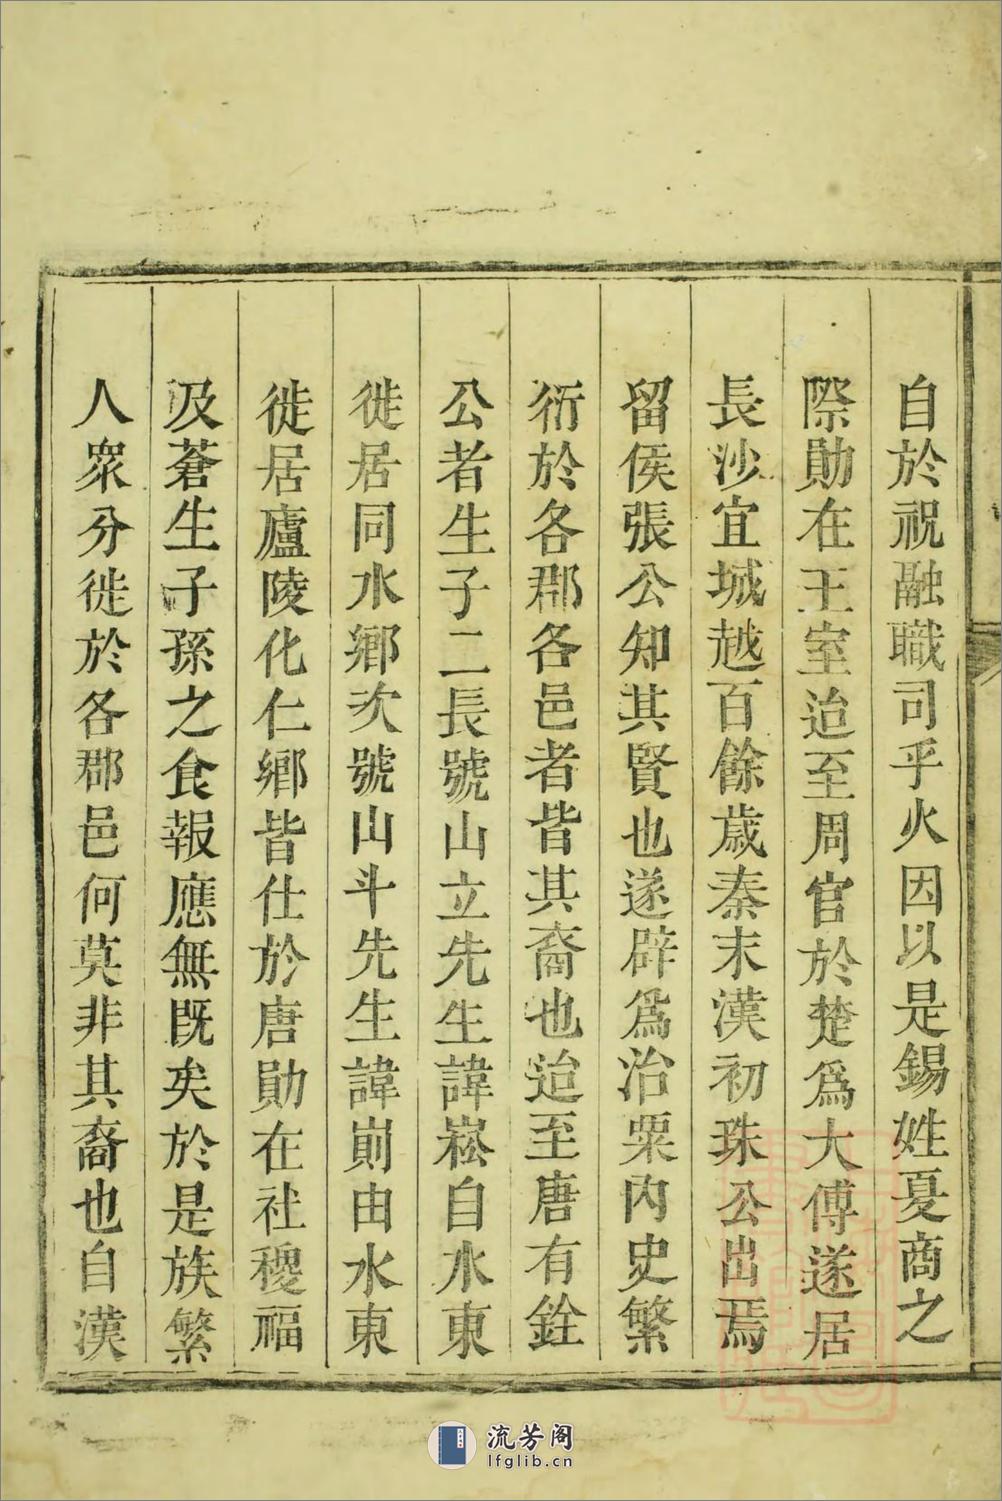 自於祝融職司乎火因以是錫姓夏商之
際勛在王室迨至周官於楚爲大傅遂居
長沙宜城越百餘歲秦末漢初珠公出焉
留侯張公知其賢也遂辟爲治粟內史繁
衍於各郡各邑者皆其裔也迨至唐有銓
公者生子二長號山立先生諱崧自水東
徙居同水鄉次號山斗先生諱崱由水東
徙居廬陵化仁鄉皆仕於唐勛在社稷福
及蒼生子孫之食報應無旣矣於是族繁
人衆分徙於各郡邑何莫非其裔也自漢
流芳阁
lfglib.cn